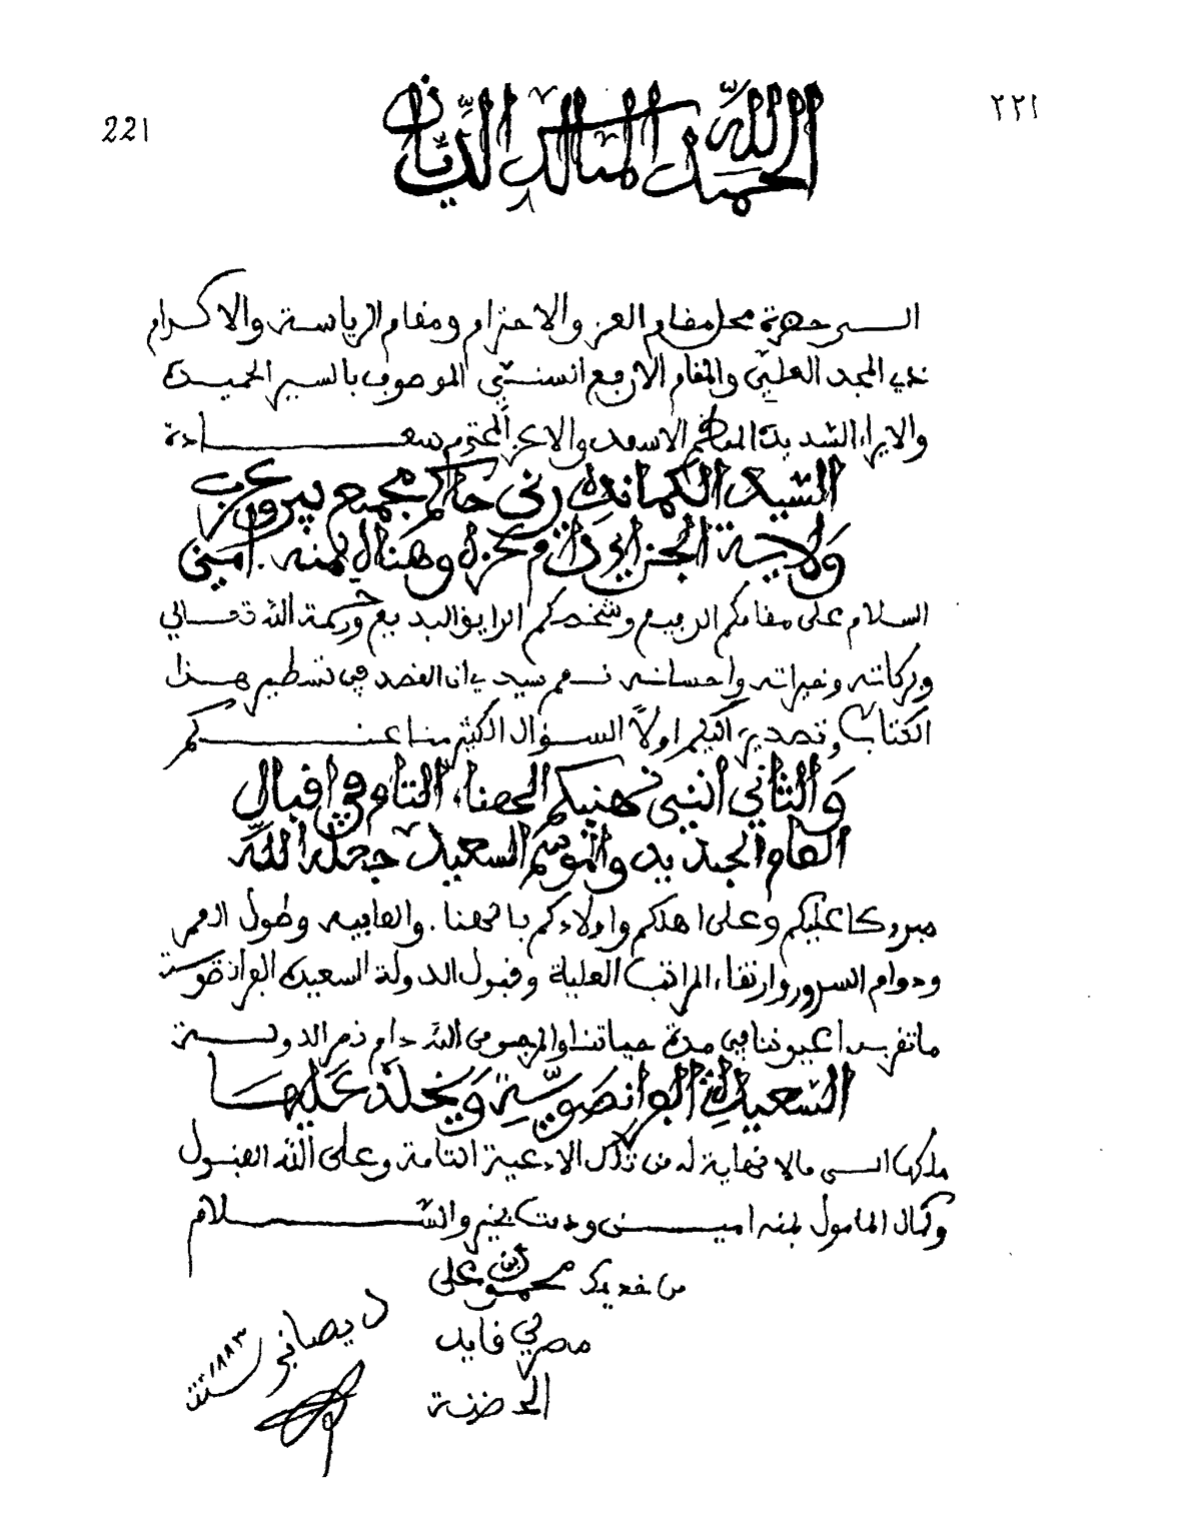 221
٢٢١
الحمد لله المالك الديان
الى حضرة محل مقام العز والاحترام ومقام الرياسة والاكرام
ذي المجد العلي والمقام الارفع السني الموصوف بالسير الحميدة
والاراء الشديدة المعظم الاسعد والاعز المحترم سعادة
السيد الكماندة رني حاكم مجمع بيرو عرب
ولاية الجزاير دام عزه وهناه بمنه . امين
السلام على مقامكم الرفيع وشخصكم الرايق البديع ورحمة الله تعالى
وبركاته وخيراته واحسانه نعم سيدي ان القصد في تسطير هذا
الكتاب وتصديره اليكم اولا السؤال الكثير منا عنكم
والثاني انني نهنيكم الهناء التام في اقبال
العام الجديد والموسم السعيد جعله الله
مبروكا عليكم وعلى اهلكم واولادكم بالهنا . والعافيه وطول العمر
ودوام السرور وارتقاء المراتب العلية وقبول الدولة السعيدة الفرانصوية
ما تقر به اعيوننا في مدة حياتنا والمرجو من الله دام نصر الدولة
السعيدة الفرانصوية ويخلد عليها
ملكها الى مالا نهاية له من تلك الادعية التامة وعلى الله القبول
وكمال المامول بمنه امين ودمت بخير والسلام
من خديمك محمد بن علي
مصرفي قايد
الحضنة
ديصانبر
سنة ١٨٨٣